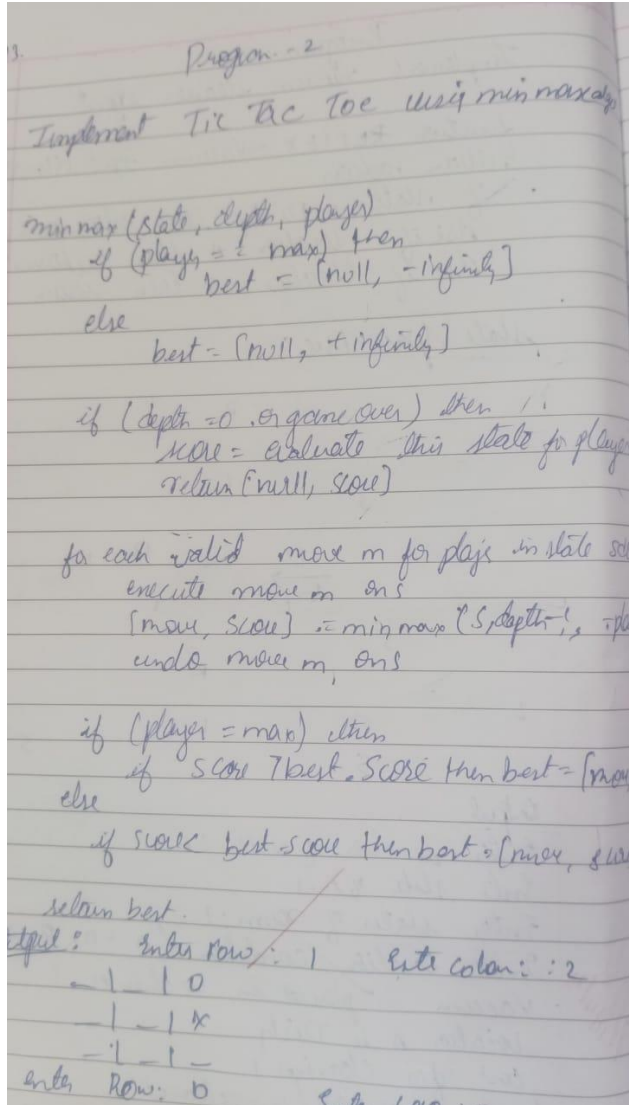 Program - 2
Implement Tic Tac Toe using min max algo
min max (state, depth, player)
if (player = = max) then
best = [null, -infinity]
else
best = [null, + infinity]
if (depth = 0 or game over) then
score = evaluate this state for player
return [null, score]
for each valid move m for player in state s
execute move m on s
[move, score] = min max (s, depth-1, -pl
undo move m, on s
if (player = max) then
if score > best.score then best = [mov
else
if score < best.score then best = [mov, sco
return best.
tput: Enter row : 1
_ | _ | O
_ | _ | X
_ | _ | _
enter Row: 0